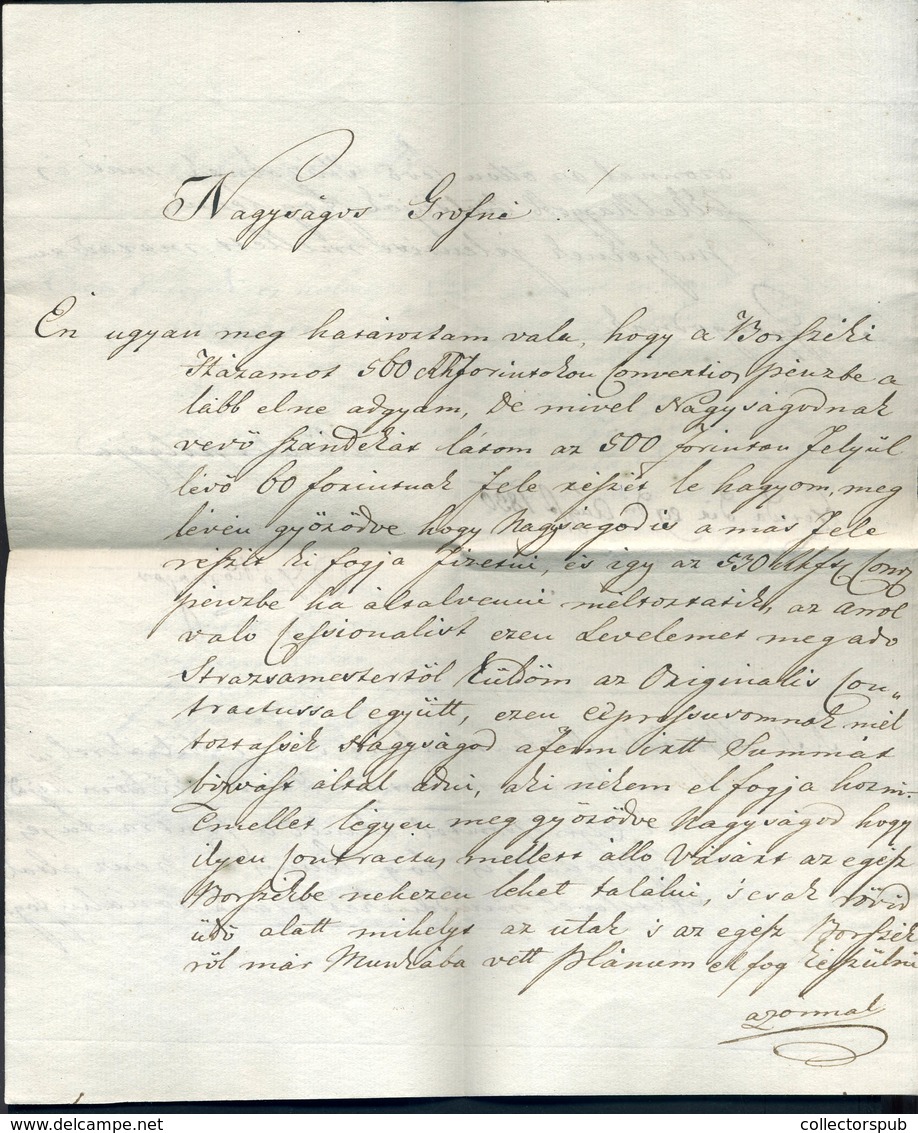 Nagyságos Grófné!
Én ugyan meg határoztam vala, hogy a Borszéki
Házamot 560 Rhforintokon Conventios pénzbe a
lább el ne adgyam, de mivel Nagyságodnak
vevő szándékát látom az 500 forinton felyül
lévő 60 forintnak fele részét le hagyom, meg
lévén győződve hogy Nagyságod is a más fele
részét ki fogja fizetni, és igy az 530 Rhft Conv
pénzbe ha általvenni méltoztatik, az arrol
valo Cessionalist ezen Levelemet meg ado
Strazsamestertöl küldöm az Originalis Con„
tractussal együtt, ezen expressusomnak mél
toztassék Nagyságod a fenn irtt Summát
bizvást által adni, aki nékem el fogja hozni –
Emellet légyen meg győződve Nagyságod hogy
ilyen Contractus mellett állo Vásárt az egész
Borszékbe nehezen lehet találni, 's csak rövid
üdő alatt mihelyt az utak 's az egész Borszék
ről már Munkába vett plánum el fog készülni
azonnal
collectorspub